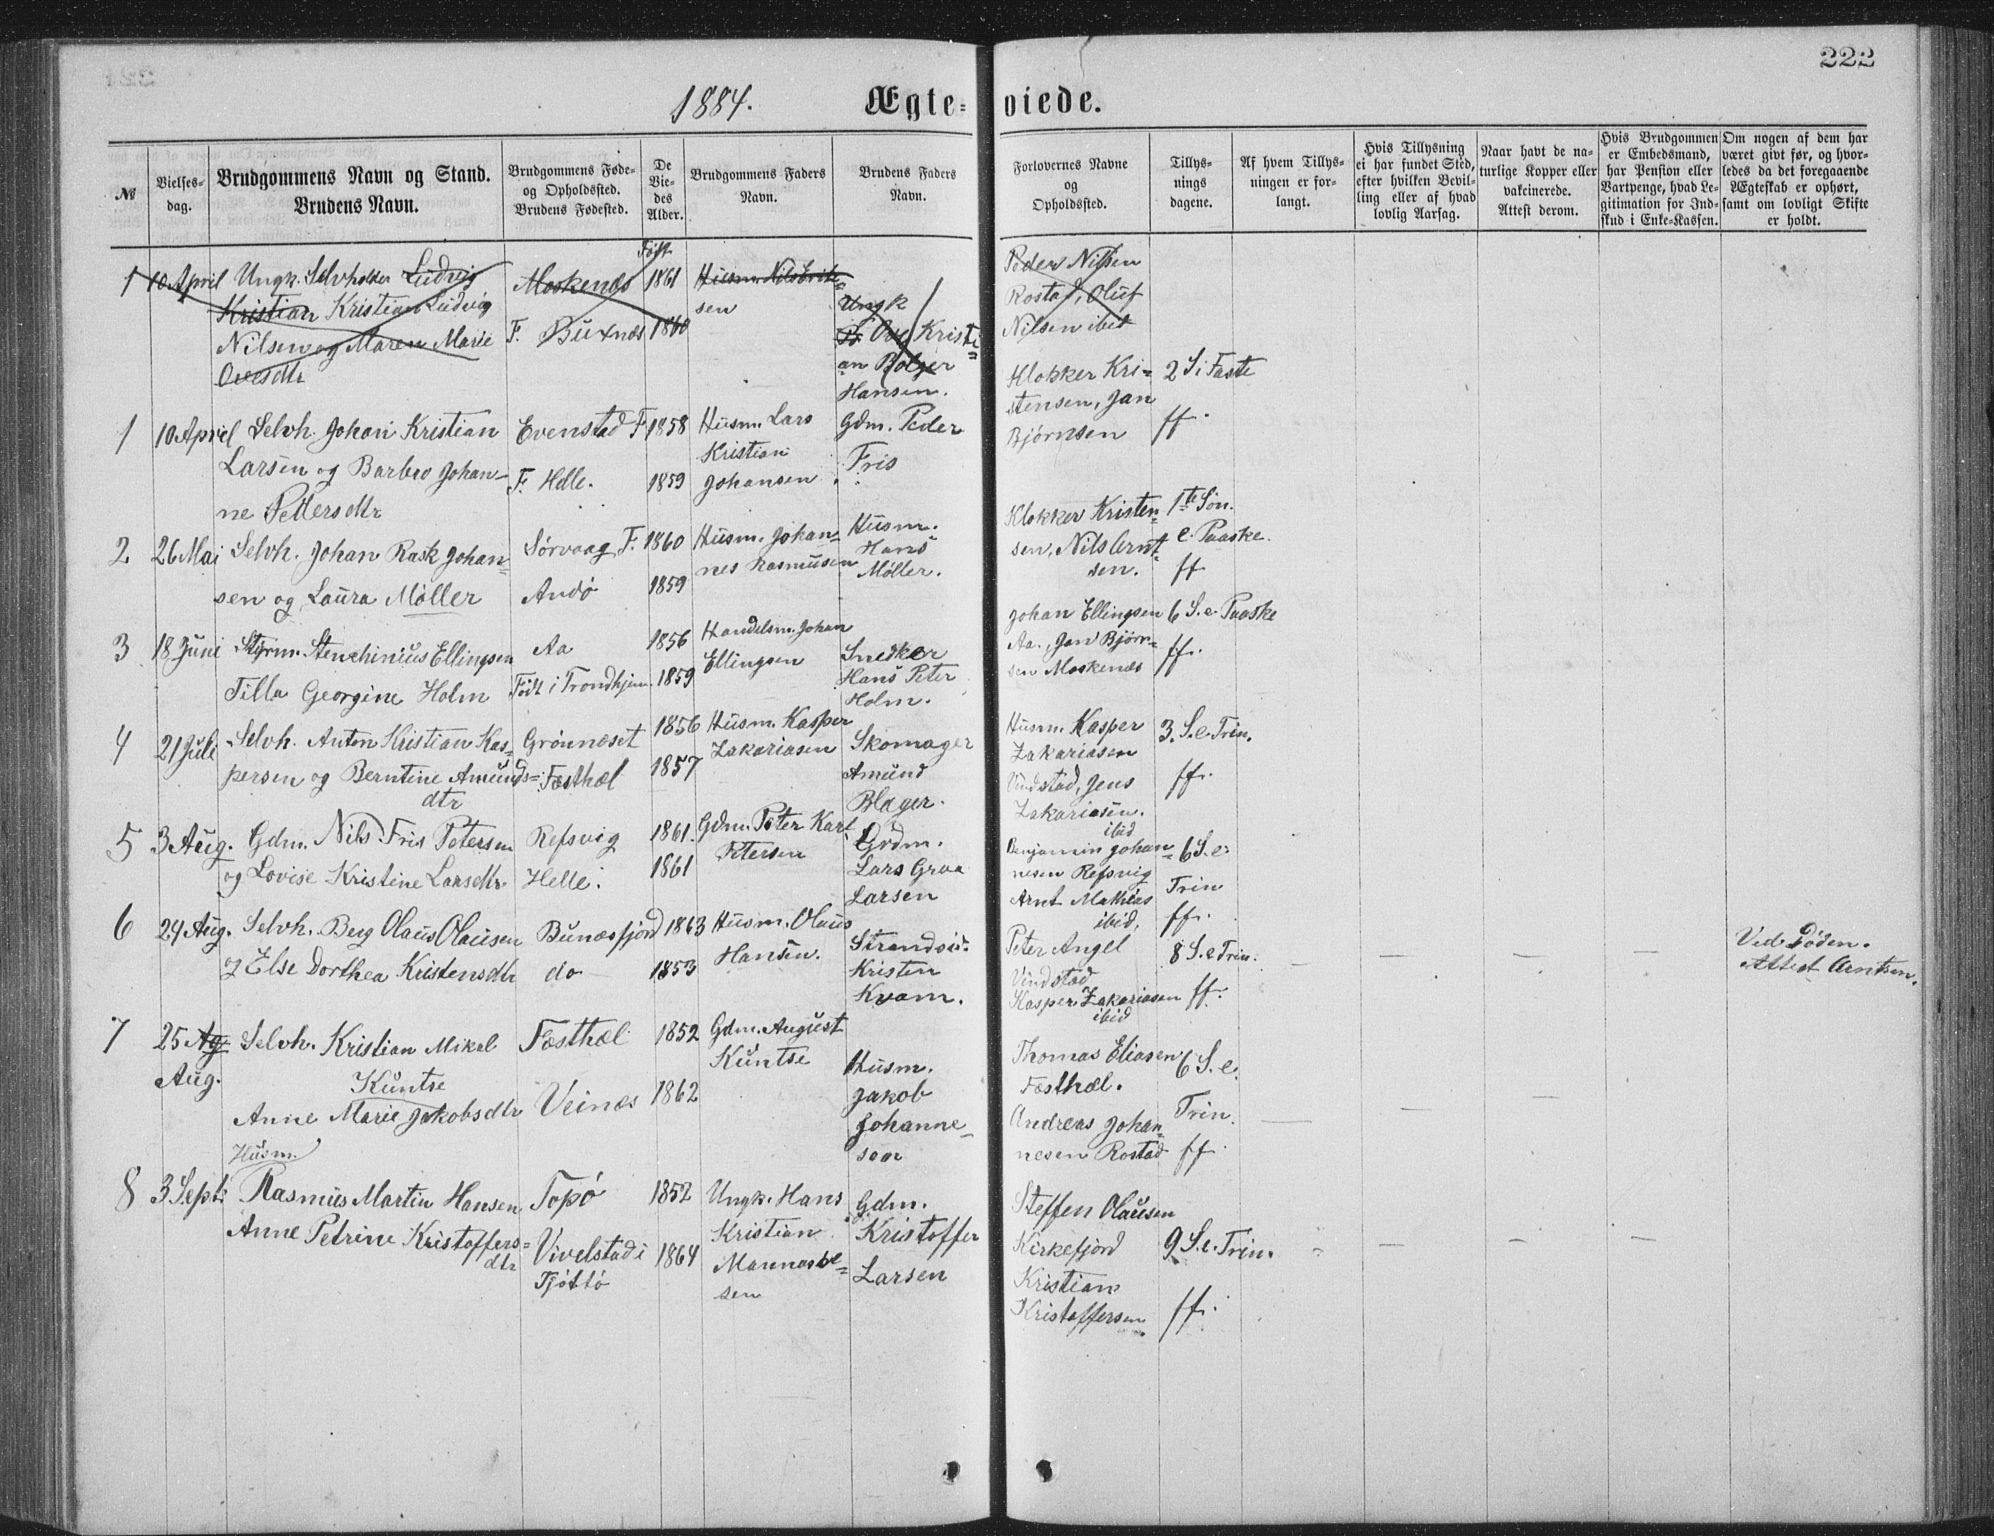 222
1884. Ægte- viede.
№
Vielses-
dag.
Brudgommens Navn og Stand.
Brudens Navn.
Brudgommens Føde-
og Opholdssted.
Brudens Fødested.
De
Vie-
des
Alder.
Brudgommens Faders
Navn.
Brudens Faders
Navn.
Forlovernes Navne
og
Opholdssted.
Tillys-
nings
dagene.
Af hvem Tillys-
ningen er for-
langt.
Hvis Tillysning
ei har fundet Sted,
efter hvilken Bevil-
ling eller af hvad
lovlig Aarsag.
Naar havt de na-
turlige Kopper eller
vakcinerede.
Attest derom.
Hvis Brudgommen
er Embedsmand,
har Pension eller
Vartpenge, hvad Le-
gitimation for Ind-
skud i Enke-Kassen.
Om nogen af dem har
været givt før, og hvor-
ledes da det foregaaende
Ægteskab er ophørt,
samt om lovligt Skifte
er holdt.
Født
1 10 April
Ungk. Selvholder Ludvig
Kristian Kristian Ludvig
Nilsen og Maren Marie
Ovesdtr
Moskenæs
F. Buxnæs
1861
1860
Husm. Nils
sen
Ungk
Ove Kristi=
an Bolger
Hansen.
Peder Nilsen
Rostad, Oluf
Nilsen ibid
1 10 April
Selvh. Johan Kristian
Larsen og Barbro Johan-
ne Pedersdtr
Evenstad F.
F. Helle.
1858
1859
Husm. Lars
Kristian
Johansen
Gdm. Peder
Fris
Klokker Kri=
stensen, Jan
Bjørnsen
2 S. i Faste
ff.
2 26 Mai
Selvh. Johan Rask Johan=
sen og Laura Møller
Sørvaag F.
Andø
1860
1859
Husm. Johan=
nes Rasmussen
Husm.
Hans
Møller.
Klokker Kristen=
sen, Nils Arnt=
sen.
1te Søn.
e. Paaske.
ff
3 18 Juni
Styrm. Stenchinius Ellingsen
Tilla Georgine Holm
Aa
Født i Trondhjem.
1856
1859
Handelsm. Johan
Ellingsen
Snedker
Hans Peter
Holm.
Johan Ellingsen
Aa., Jan Bjørn=
sen Moskenæs
6 S. e. Paaske
ff.
4 21 Juli
Selvh. Anton Kristian Kas=
persen og Berntine Amunds=
dtr
Grönneset
Fæsthæl
1856
1857
Husm. Kasper
Zakariasen
Skomager
Amund
Blager.
Husm. Kasper
Zakariasen
Vindstad, Jens
Zakariasen.
ibid
3. S. e. Trin.
ff.
5 3 Aug.
Gdm. Nils Fris Petersen
og Lovise Kristine Larsdtr.
Refsvig
Helle.
1861.
1861
Gdm. Peter Karl
Petersen
Grdm.
Lars Graa
Larsen
Benjamin Johan=
nesen Refsvig
Arnt Mathias
ibid,
6 S. e.
Trin
ff.
6 24 Aug.
Selvh. Berg Olaus Olausen
og Else Dorthea Kristensdtr
Bunæsfjord
do
1863
1853
Husm. Olaus
Hansen.
Strandsid.
Kristen
Kvam.
Peter Angel
Vindstad
Kasper Zakariasen
ibid
8 S. e Trin.
ff.
Ved Döden.
Attest Arntsen.
7 25 Ag
Aug.
Selvh. Kristian Mikal
Kuntse
Anne Marie Jakobsdtr
Fæsthæl
Veinæs
1852
1862
Gdm. August
Kuntse
Husm.
Jakob
Johanne=
sen
Thomas Eliasen
Fæsthæl.
Andreas Johan=
nesen Rostad
6 S. e.
Trin.
ff.
8 3 Sept:
Husm.
Rasmus Martin Hansen
Anne Petrine Kristoffers=
dtr
Topö
Vivelstad i
Tjøttø
1852
1864
Ungk. Hans
Kristian
sen
Gdm.
Kristoffer
Larsen
Steffen Olausen
Kirkefjord
Kristian
Kristoffersen
9 S. e. Trin.
ff.